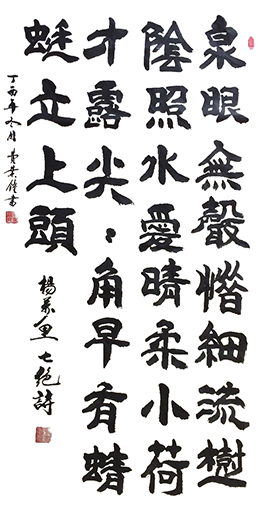 泉眼無聲惜細流樹
陰照水愛晴柔小荷
才露尖：角早有蜻
蜓立上頭
楊萬里七絕詩
丁酉年冬月書